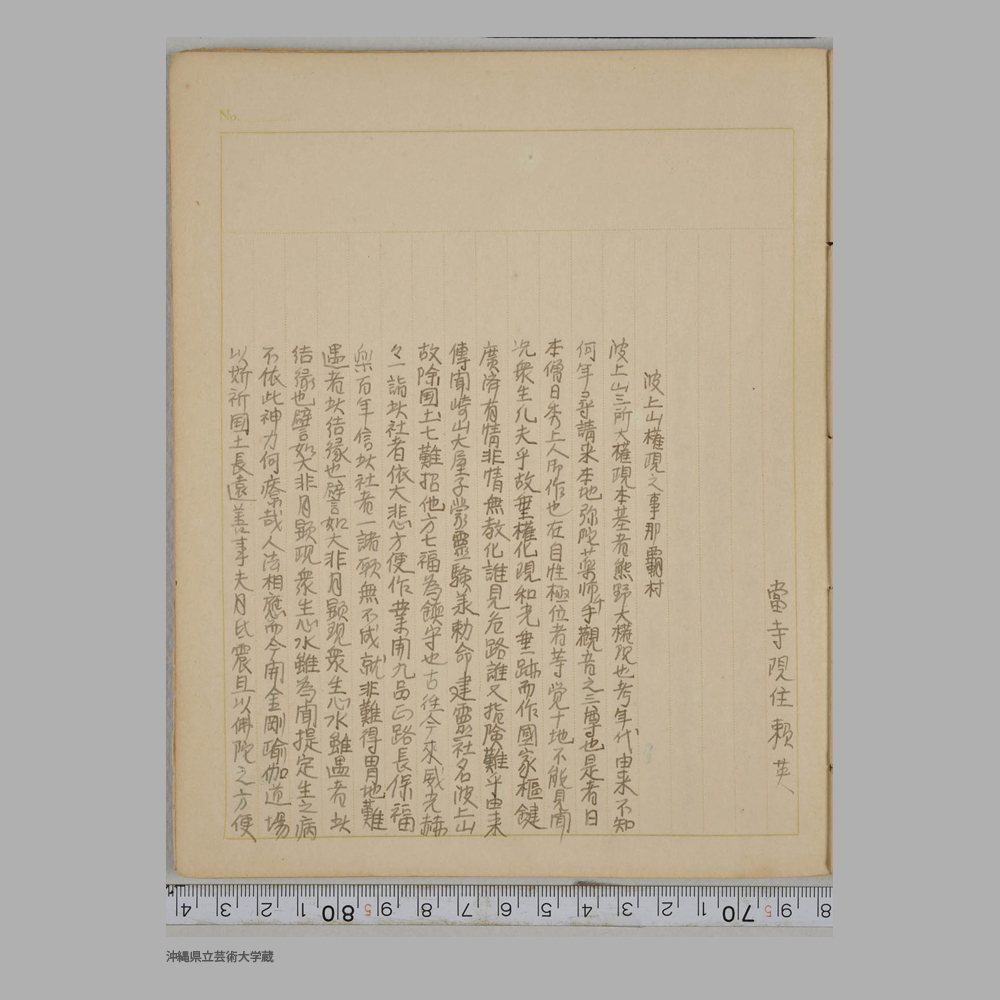 當寺現住頼英
波上山權現之事那覇村
波上山三所大權現本基者熊野大權現也考年代由来不知
何年尋請来本地弥陀薬師千手觀音之三尊也是者日
本僧日秀上人御作也在自性極位者等覚十地不能見聞
况衆生凡夫乎故垂權化現和光垂跡而作國家樞鍵
廣済有情非情無教化誰見危路誰又指険難乎由来
傳聞崎山大屋子蒙霊験承勅命建霊社名波上山
故除国土七難招他方七福為鎮守也古往今來威光赫
々一詣此社者依大悲方便作業開九品正路長保福
楽百年信此社者一諸願無不成就非難得冒地難
遇者此結縁也譬如大非月顕現衆生心水雖遇者此
結縁也譬如大非月顕現衆生心水雖為闡提定生之病
不依此神力何療哉人法相應而今開金剛瑜伽道場
以祈国土長遠善事夫月氏震旦以佛陀之方便
No.
4 3 2 1 80 5 9 8 7 6 5 4 3 2 1 70 5 9 8
沖縄県立芸術大学蔵